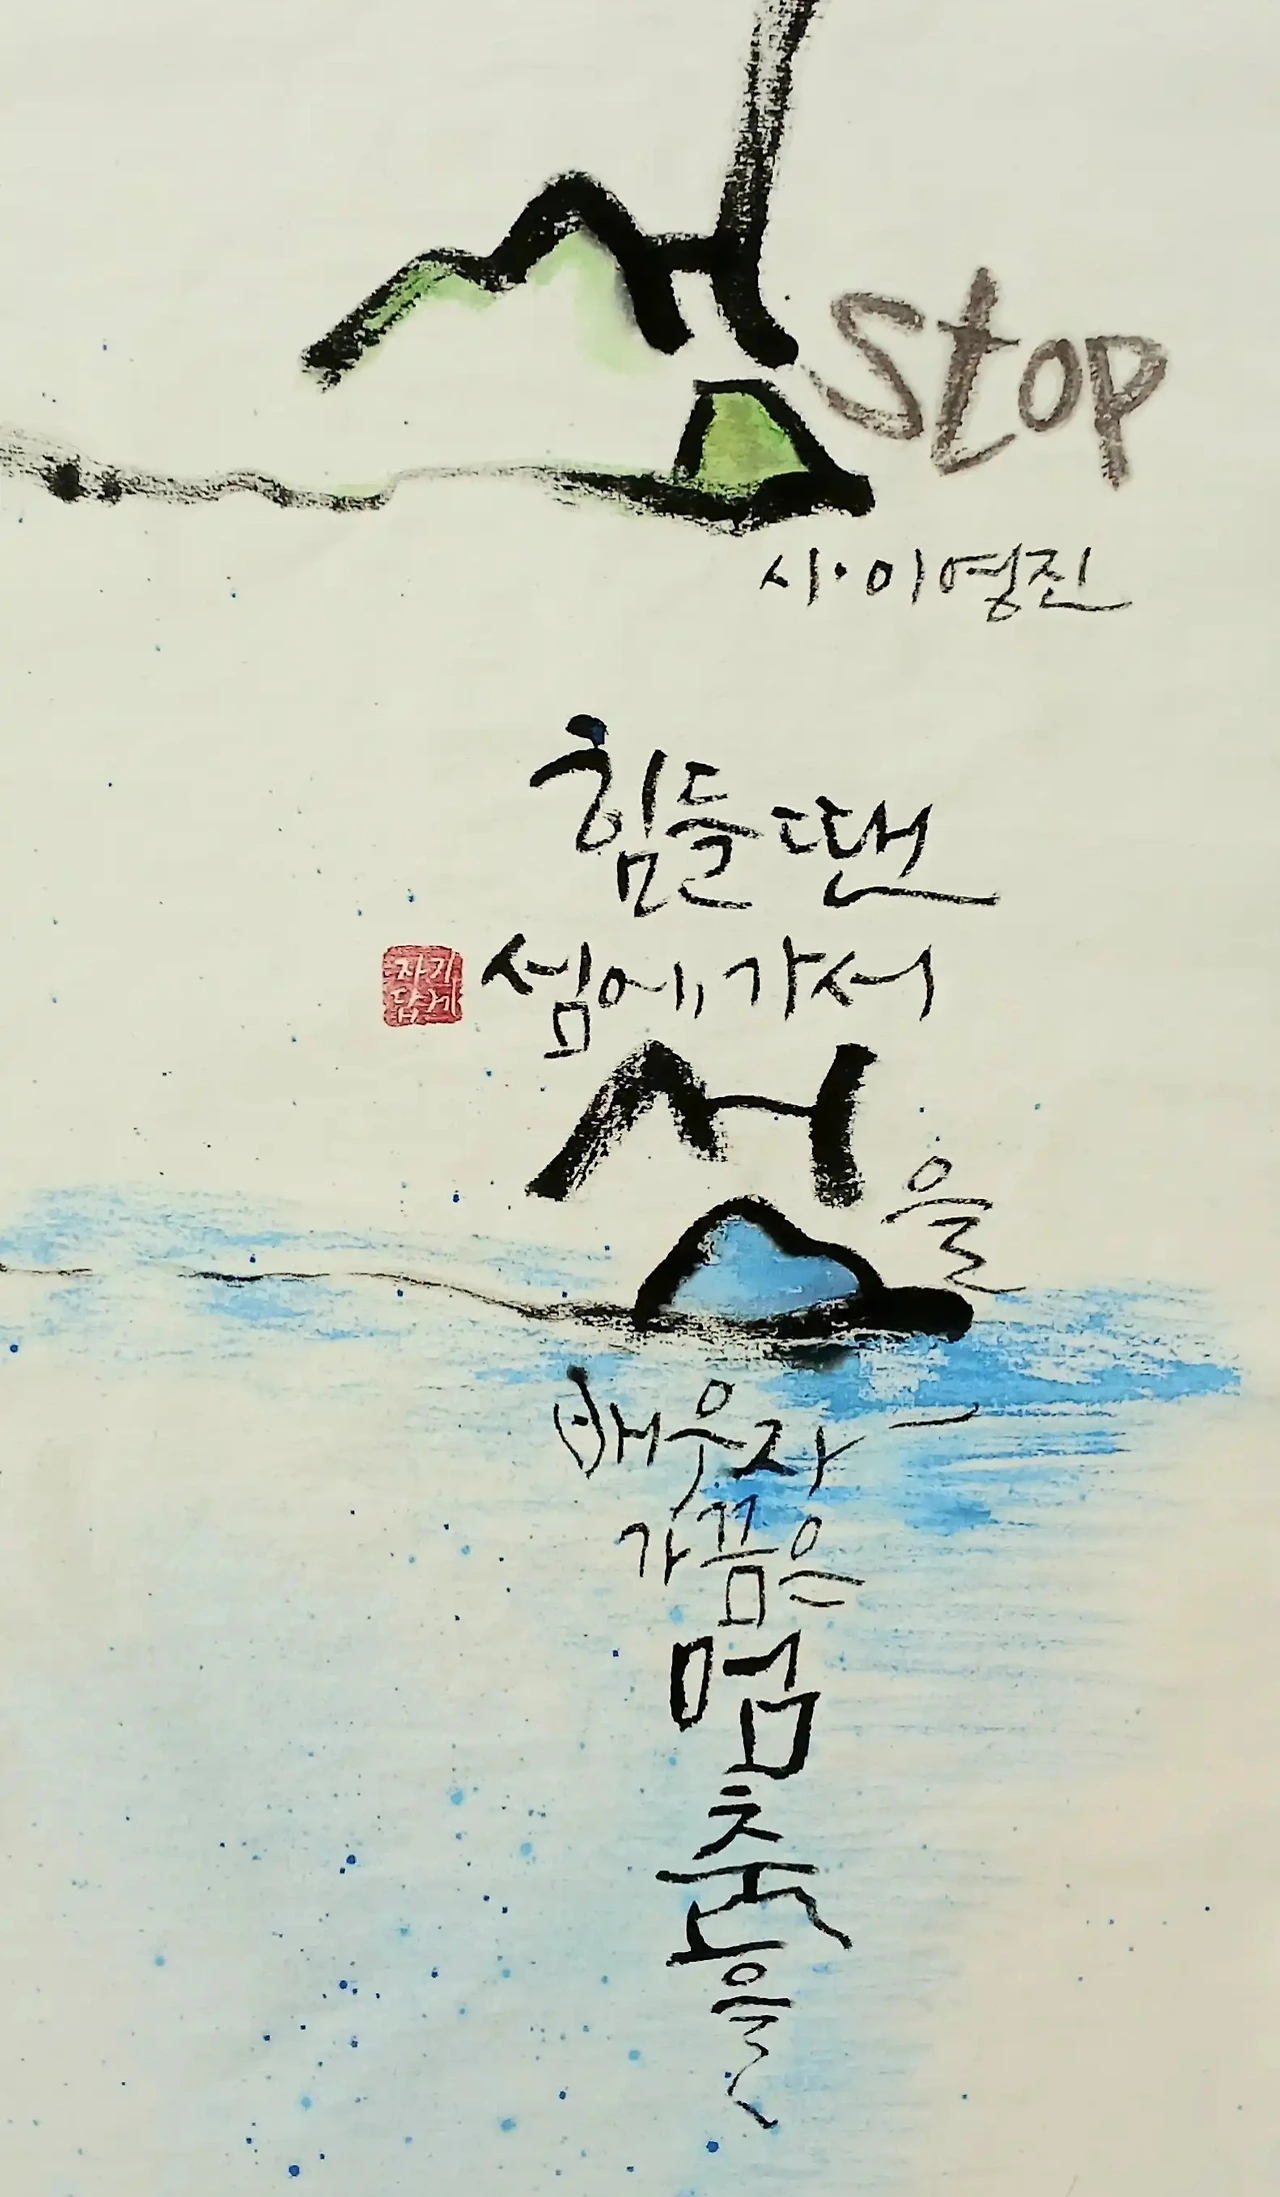 섬 Stop
시·이영진
힘들 땐
섬에 가서
자기
답게
섬을
배우자~
가끔은
멈
춤
을